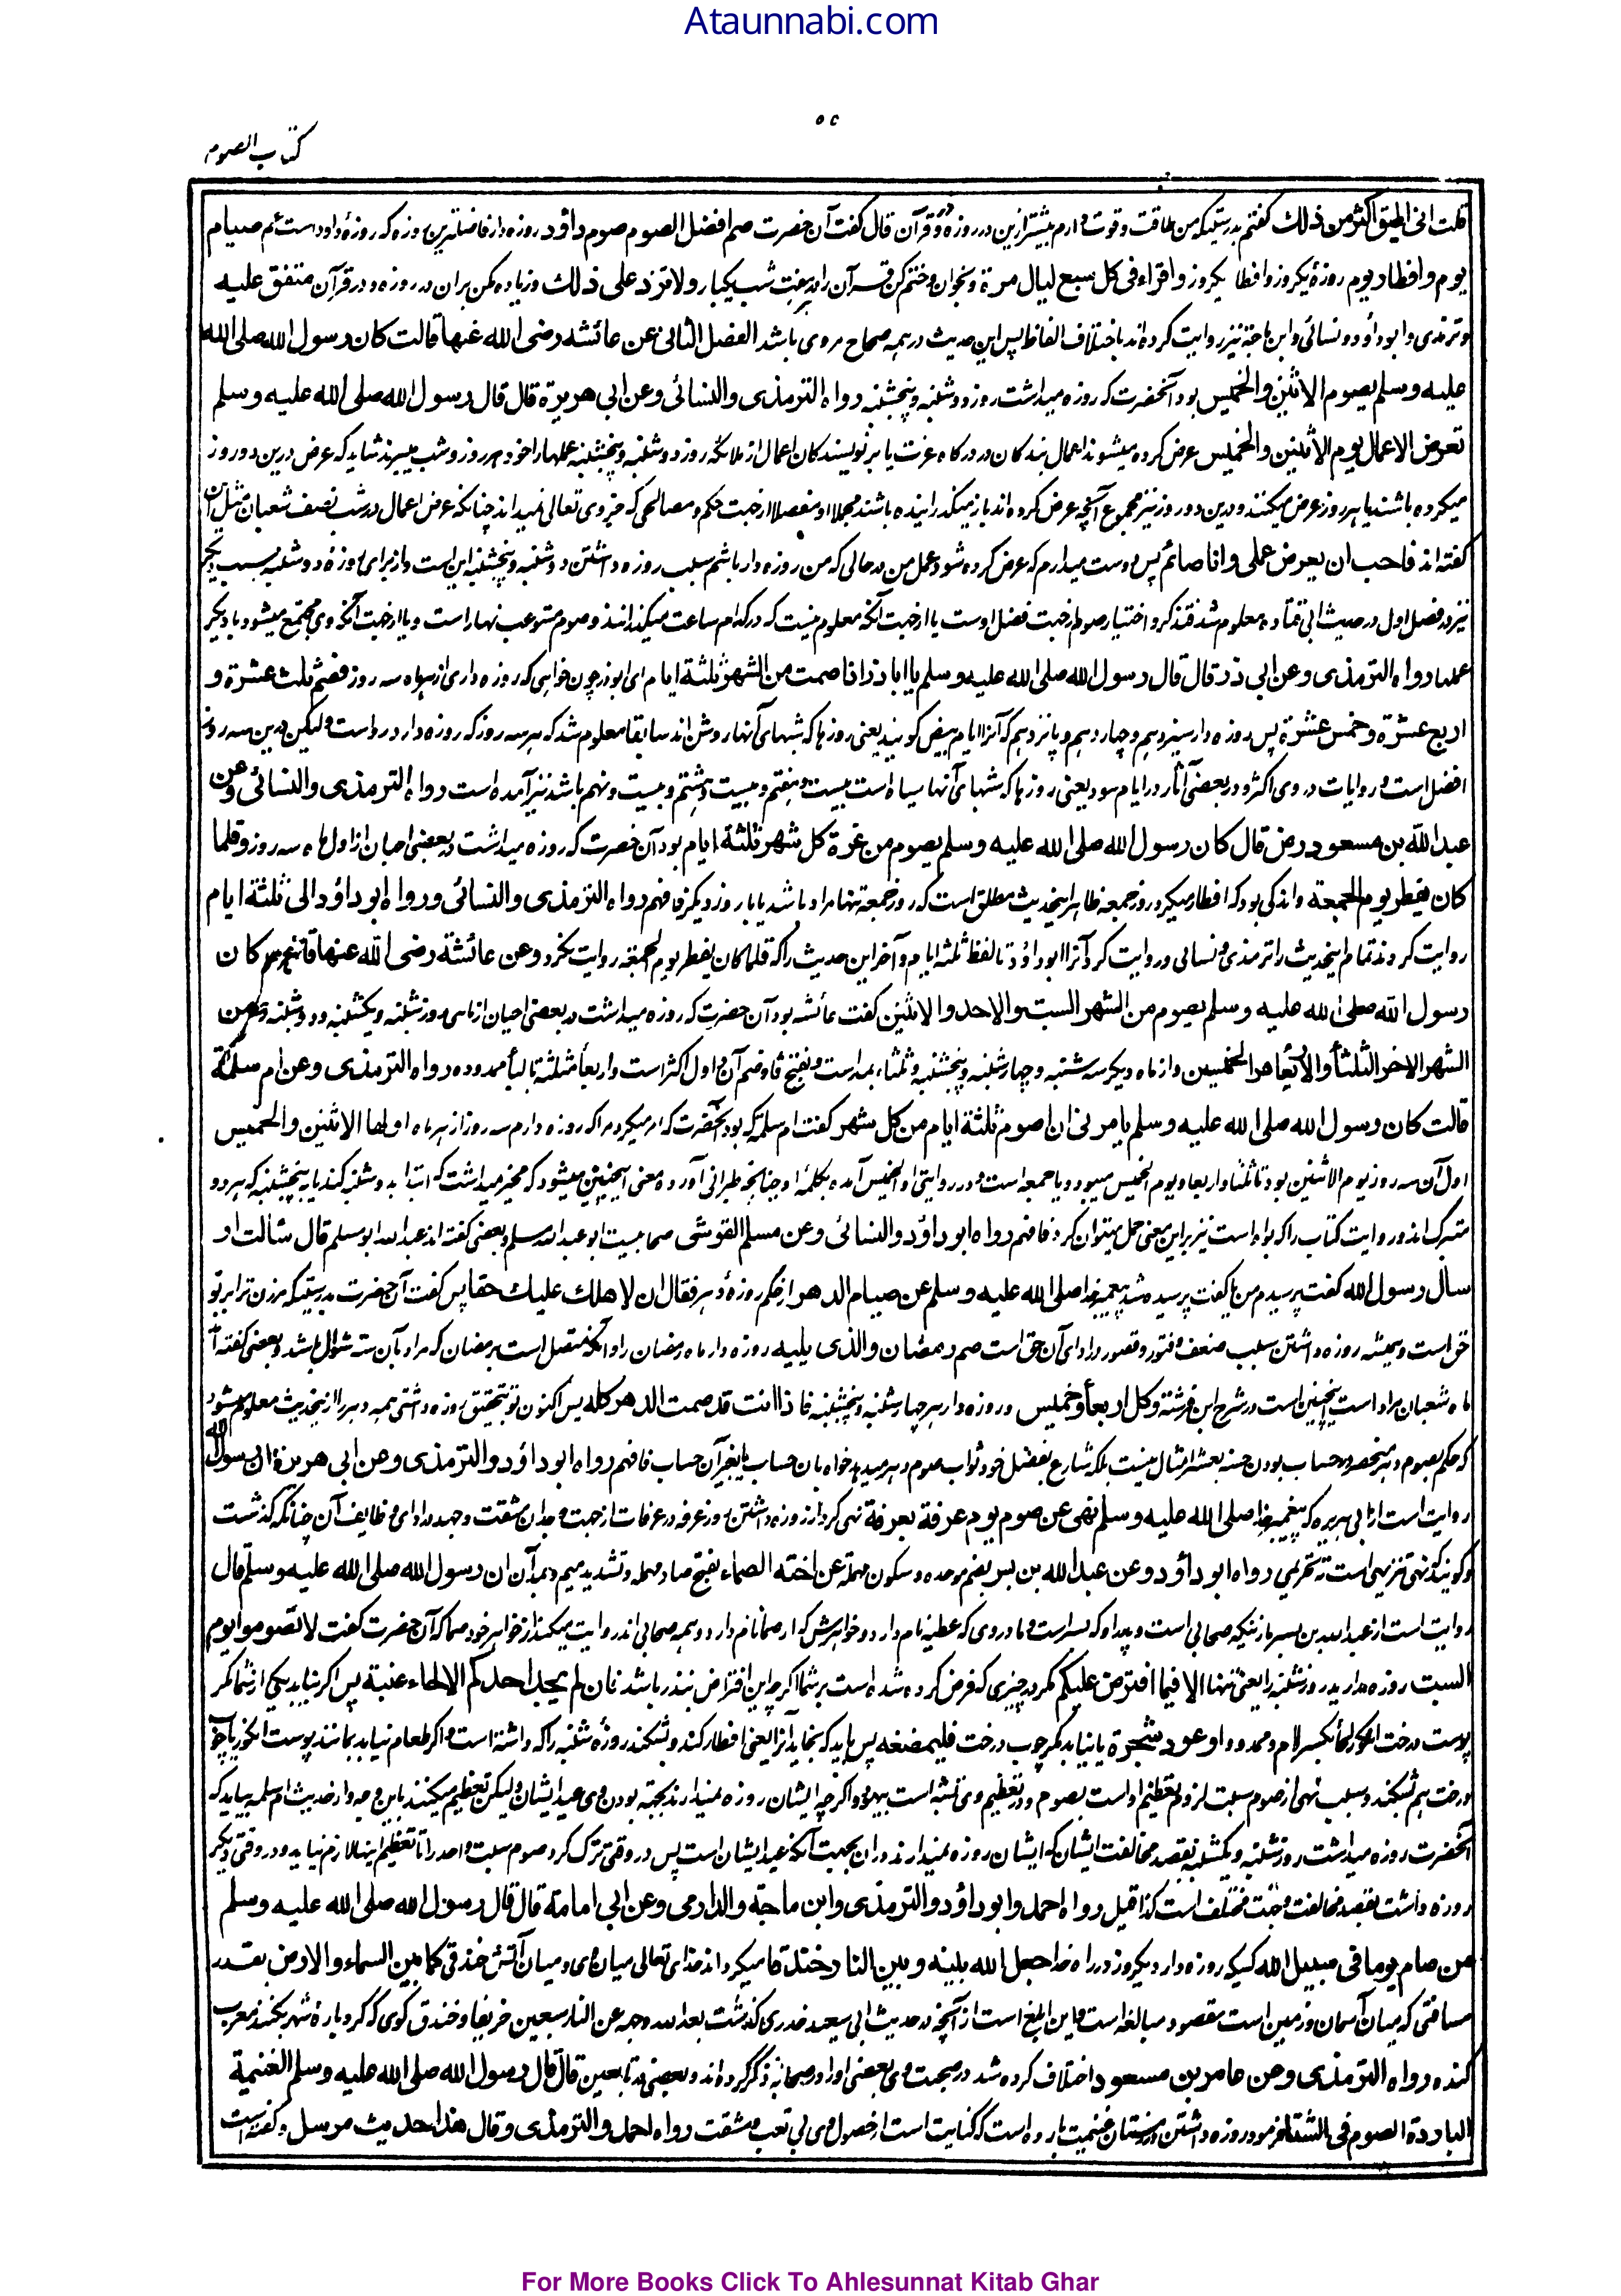 Ataunnabi.com
کتاب الصوم
قلت انی اطیق اکثر من ذلك گفتم بدرستیکه من طاقت و قوت دارم بیشتر ازین در روزه و قرآن قال گفت آن حضرت صم افضل الصوم صوم داؤد روزه دار فاضلترین روزه که روزهٔ داود است ثم صیام
یوم وافطار یوم روزهٔ یکروز و افطار یکروز واقراء فی کل سبع لیال مرة و بخوان و ختم کن قرآن را در هفت شب یکبار ولا تزد علی ذلك و زیاده مکن بران در روزه و در قرآن متفق علیه
و ترمذی و ابوداؤد و نسائی و ابن ماجه نیز روایت کرده اند باختلاف الفاظ پس این حدیث در همه صحاح مروی باشد الفصل الثانی عن عائشه رضی الله عنها قالت کان رسول الله صلی الله
علیه وسلم یصوم الاثنین والخمیس بود آنحضرت که روزه میداشت روز دوشنبه و پنجشنبه رواه الترمذی والنسائی وعن ابی هریرة قال قال رسول الله صلی الله علیه وسلم
تعرض الاعمال یوم الاثنین والخمیس عرض کرده میشوند اعمال بندگان در درگاه عزت یا بر نویسندگان اعمال از ملائکه روز دوشنبه و پنجشنبه عملها را خود هر روز و شب میبرند شاید که عرض درین دو روز
میکرده باشند یا هر روز عرض میکنند و درین دو روز نیز مجموع آنچه عرض کرده اند باز میگذرانیده باشند مجملا او مفصلا از جهت حکم و مصالحی که جز وی تعالی نمیداند چنانکه عرض اعمال در شب نصف شعبان مثل این
گفته اند فاحب ان یعرض عملی وانا صائم پس دوست میدارم که عرض کرده شود عمل من در حالی که من روزه دار باشم سبب روزه داشتن دوشنبه و پنجشنبه این است و از برای روزهٔ دوشنبه سبب دیگر
نیز در فصل اول در حدیث ابی قتاده معلوم شد فتذکر و اختیار صوم از جهت فضل اوست یا از جهت آنکه معلوم نیست که در کدام ساعت میگذرانند و صوم مستوعب نهار است و یا از جهت آنکه وی مجتمع میشود با دیگر
عملها رواه الترمذی وعن ابی ذر قال قال رسول الله صلی الله علیه وسلم یا ابا ذر اذا صمت من الشهر ثلثة ایام ای ابوذر چون خواهی که روزه داری از هر ماه سه روز فصم ثلث عشرة و
اربع عشرة و خمس عشرة پس روزه دار سیزدهم و چهاردهم و پانزدهم که آنرا ایام بیض گویند یعنی روزها که شبهای آنها روشن اند سابقا معلوم شد که هر سه روز که روزه دارد رواست ولیکن درین سه روز
افضل است و روایات در وی اکثر و در بعضی آثار در ایام سود یعنی روزها که شبهای آنها سیاه است بیست و هفتم و بیست و هشتم و بیست و نهم باشد نیز آمده است رواه الترمذی والنسائی وعن
عبد الله بن مسعود رض قال کان رسول الله صلی الله علیه وسلم یصوم من غرة کل شهر ثلثة ایام بود آن حضرت که روزه میداشت در بعضی احیان از اول ماه سه روز وقلما
کان یفطر یوم الجمعة و اندکی بود که افطار میکرد روز جمعه ظاهر این حدیث مطلق است که روز جمعه تنها مراد باشد یا با روز دیگر فافهم رواه الترمذی والنسائی ورواه ابوداؤد الی ثلثة ایام
روایت کردند تمام این حدیث را ترمذی و نسائی و روایت کرد آنرا ابوداؤد تا لفظ ثلثه ایام و آخر این حدیث را که قلما کان یفطر یوم الجمعة روایت نکرد وعن عائشة رضی الله عنها قالت کان
رسول الله صلی الله علیه وسلم یصوم من الشهر السبت والاحد والاثنین گفت عائشه بود آن حضرت که روزه میداشت در بعضی احیان از ماهی روز شنبه و یکشنبه و دوشنبه ومن
الشهر الاخر الثلثاء والاربعاء والخمیس و از ماه دیگر سه شنبه و چهارشنبه و پنجشنبه و ثلثاء بمد است و بفتح ثا و ضم آن و اول اکثر است و اربعا مثلثة البا ممدوده رواه الترمذی وعن ام سلمة
قالت کان رسول الله صلی الله علیه وسلم یامرنی ان اصوم ثلثة ایام من کل شهر گفت ام سلمه که بود آنحضرت که امر میکرد مرا که روزه دارم سه روز از هر ماه اولها الاثنین والخمیس
اول آن سه روز یوم الاثنین بود تا ثلثا و اربعا و یوم الخمیس میبود و یا جمعه است و در روایتی او الخمیس آمده بکلمهٔ او چنانچه طبرانی آورده و معنی اینچنین میشود که مخیر میداشت که ابتدا به دوشنبه کند یا به پنجشنبه که هر دو
متبرک اند و روایت کتاب را که بواو است نیز براین معنی حمل میتوان کرد فافهم رواه ابوداؤد والنسائی وعن مسلم القرشی صحابیست ابو عبدالله مسلم و بعضی گفته اند عبدالله ابو مسلم قال سالت او
سال رسول الله گفت پرسیدم من یا گفت پرسیده شد پیغمبر خدا صلی الله علیه وسلم عن صیام الدهر از حکم روزهٔ دهر فقال ان لاهلك علیك حقا پس گفت آن حضرت بدرستیکه مر زن ترا بر تو
حق است و همیشه روزه داشتن سبب ضعف و فتور و قصور در ادای آن حق است صم رمضان والذی یلیه روزه دار ماه رمضان را و آنکه متصل است برمضان که مراد بآن سته شوال باشد و بعضی گفته اند
ماه شعبان مراد است اینچنین است در شرح ابن فرشته وکل اربعاء وخمیس و روزه دار هر چهارشنبه و پنجشنبه فاذا انت قد صمت الدهر کله پس اکنون تو بتحقیق روزه داشتی همه دهر را ازین حدیث معلوم میشود
که حکم بصوم دهر منحصر در حساب بودن حسنه بعشر امثال نیست بلکه شارع بفضل خود ثواب صوم دهر میدهد خواه بان حساب یا بغیر آن حساب فافهم رواه ابوداؤد والترمذی وعن ابی هریرة ان رسول الله
روایت است از ابی هریره که پیغمبر خدا صلی الله علیه وسلم نهی عن صوم یوم عرفة بعرفة نهی کرد از روزه داشتن روز عرفه در عرفات از جهت وجدان مشقت و جهد در ادای وظایف آن چنانکه گذشت
و گویند که نهی تنزیهی است نه تحریمی رواه ابوداؤد وعن عبد الله بن بسر بضم موحده و سکون مهمله عن اخته الصماء بفتح صاد مهمله و تشدید میم و مد آن ان رسول الله صلی الله علیه وسلم قال
روایت است از عبدالله بن بسر مازنی که صحابی است و پدر او که بسر است و مادر وی که عطیه نام دارد و خواهرش که او صما نام دارد و همه صحابی اند روایت میکند از خواهر خود صما که آن حضرت گفت لا تصوموا یوم
السبت روزه مدارید روز شنبه را یعنی تنها الا فیما افترض علیکم مگر در چیزی که فرض کرده شده است بر شما اگرچه این افتراض بنذر باشد فان لم یجد احدکم الا لحاء عنبة پس اگر نیابد یکی از شما مگر
پوست درخت انگور لحا بکسر لام و ممدود او عود شجرة یا نیابد مگر چوب درخت فلیمضغه پس باید که بخاید آنرا یعنی افطار کند و بشکند روزهٔ شنبه را که داشته است و اگر طعام نیابد بمانند پوست انگور یا چوب
درخت هم بشکند و سبب نهی از صوم سبت لزوم تعظیم اوست بصوم و در تعظیم وی تشبه است بیهود و اگرچه ایشان روزه نمیدارند بجهت بودن وی عید ایشان ولیکن تعظیم میکنند باین وجه و از حدیث ام سلمه بیاید که
آنحضرت روزه میداشت روز شنبه و یکشنبه بقصد مخالفت ایشان که ایشان روزه نمیدارند دران بجهت آنکه عید ایشان است پس در وقتی ترک کرد صوم سبت و احد را تا تعظیم اینها لازم نیاید و در وقتی دیگر
روزه داشت بقصد مخالفت و جهت مختلف است کذا قیل رواه احمد وابوداؤد والترمذی وابن ماجة والدارمی وعن ابی امامة قال قال رسول الله صلی الله علیه وسلم
من صام یوما فی سبیل الله کسیکه روزه دارد یکروز در راه خدا جعل الله بینه وبین النار خندقا میگرداند خدای تعالی میان وی و میان آتش خندقی کما بین السماء والارض بقدر
مسافتی که میان آسمان و زمین است مقصود مبالغه است و این ابلغ است از آنچه در حدیث ابی سعید خدری گذشت بعد الله وجهه عن النار سبعین خریفا و خندق گوی که گرد بارهٔ شهر بکنند معرب
کنده رواه الترمذی وعن عامر بن مسعود اختلاف کرده شد در صحبت وی بعضی او را در صحابه ذکر کرده اند و بعضی در تابعین قال قال رسول الله صلی الله علیه وسلم الغنیمة
الباردة الصوم فی الشتاء فرمود روزه داشتن در زمستان غنیمت بارده است که کنایت است از حصول وی بی تعب و مشقت رواه احمد والترمذی وقال هذا حدیث مرسل و گفته است
For More Books Click To Ahlesunnat Kitab Ghar